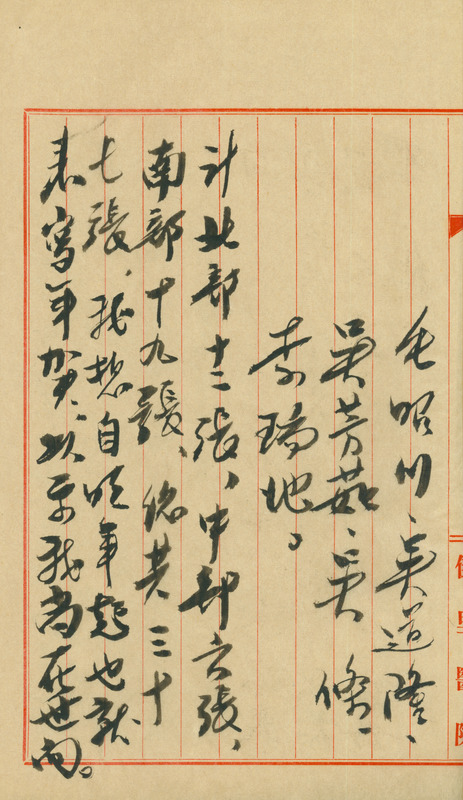 毛昭川、吳道隆、
吳芳茹、吳 條、
李瑞地。
計北部十二張、中部六張、
南部十九張、總共三十
七張，我想自明年起也就
來寫年賀、以示我尚在世間。
里醫院